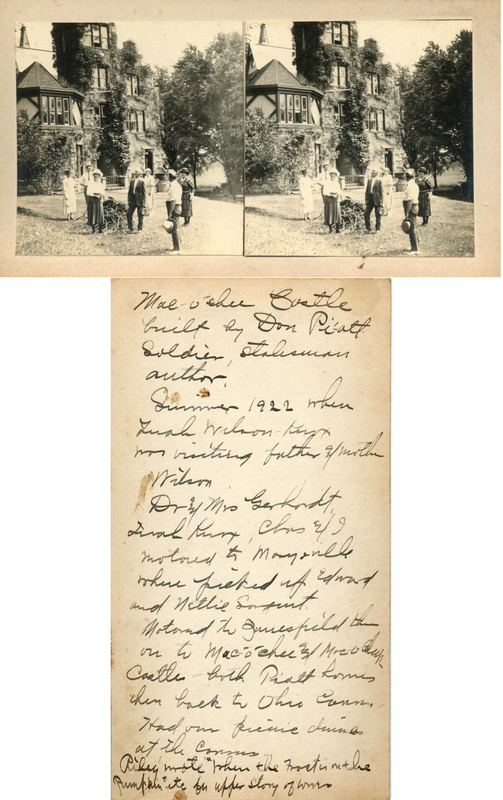 Mac-o-chee Castle
built by Don Piatt
Soldier, Statesman
author,
Summer 1922 when
Wilson-Knox
was visiting father & mother
Wilson
Dr & Mrs Gerhardt,
Knox, Chas & I
motored to Marysville
where picked up Edward
and Nettie Sargent.
Motored to Zanesfield then
on to Mac-o-chee &
Castles both Piatt homes
then back to Ohio Caverns
Had our picnic dinner
at the Caverns
Riley wrote "when the frost is on the
Pumpkin" etc in upper story of ours